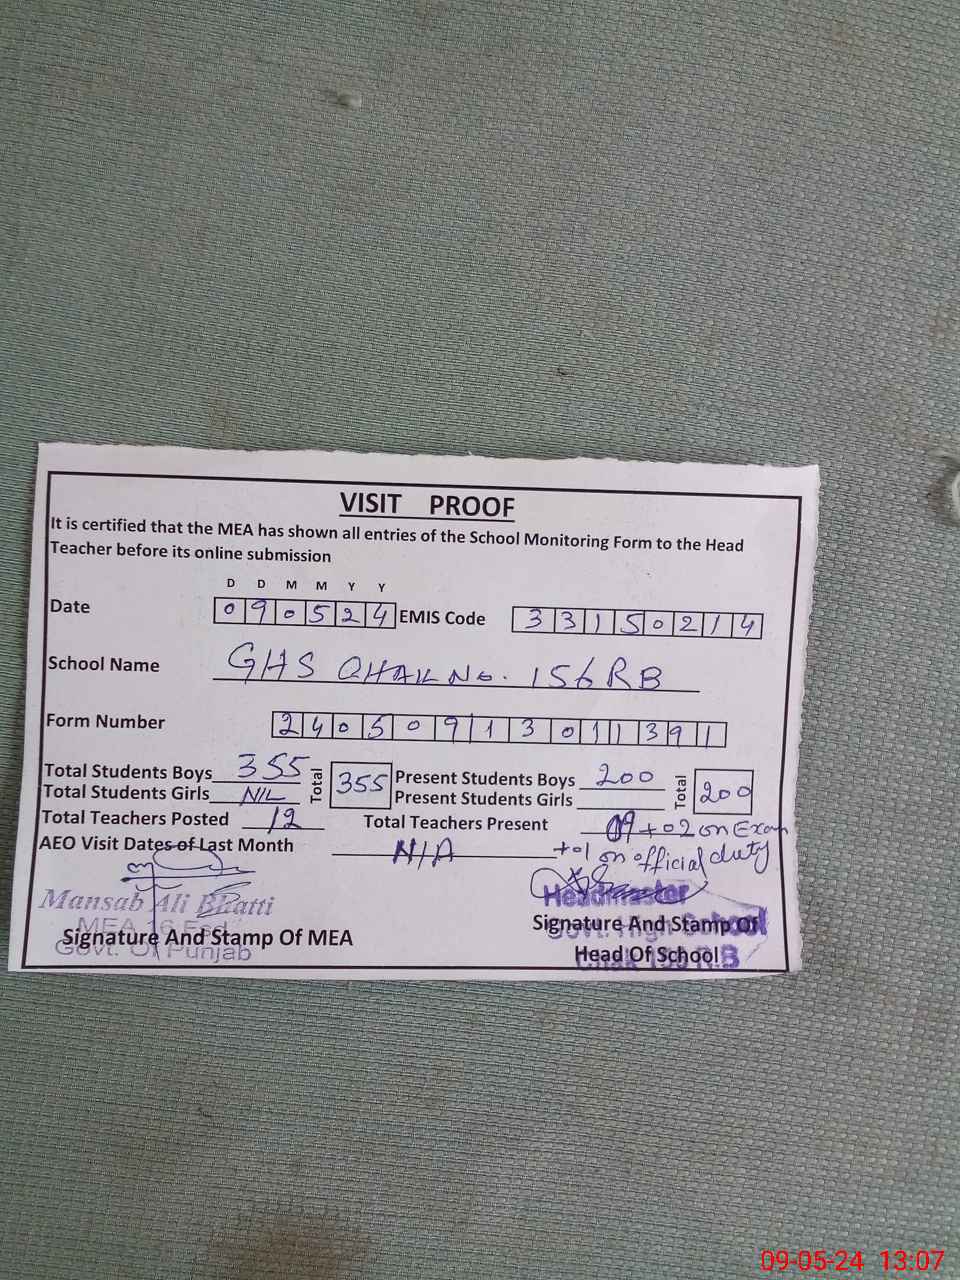 VISIT PROOF
It is certified that the MEA has shown all entries of the School Monitoring Form to the Head
Teacher before its online submission
D D M M Y Y
Date 090524 EMIS Code 33150214
School Name GHS CHAK No. 156 RB
Form Number 24050913011391
Total Students Boys 355 Total 355 Present Students Boys 200 Total 200
Total Students Girls NIL Present Students Girls
Total Teachers Posted 12 Total Teachers Present 09 +02 on Exam
+01 on official duty
AEO Visit Dates of Last Month N/A
Mansab Ali Bhatti
MEA 16 Fsd
Signature And Stamp Of MEA
Govt. Of Punjab
Headmaster
Signature And Stamp Of
Govt. High School
Head Of School
Chak 156 R.B
09-05-24 13:07